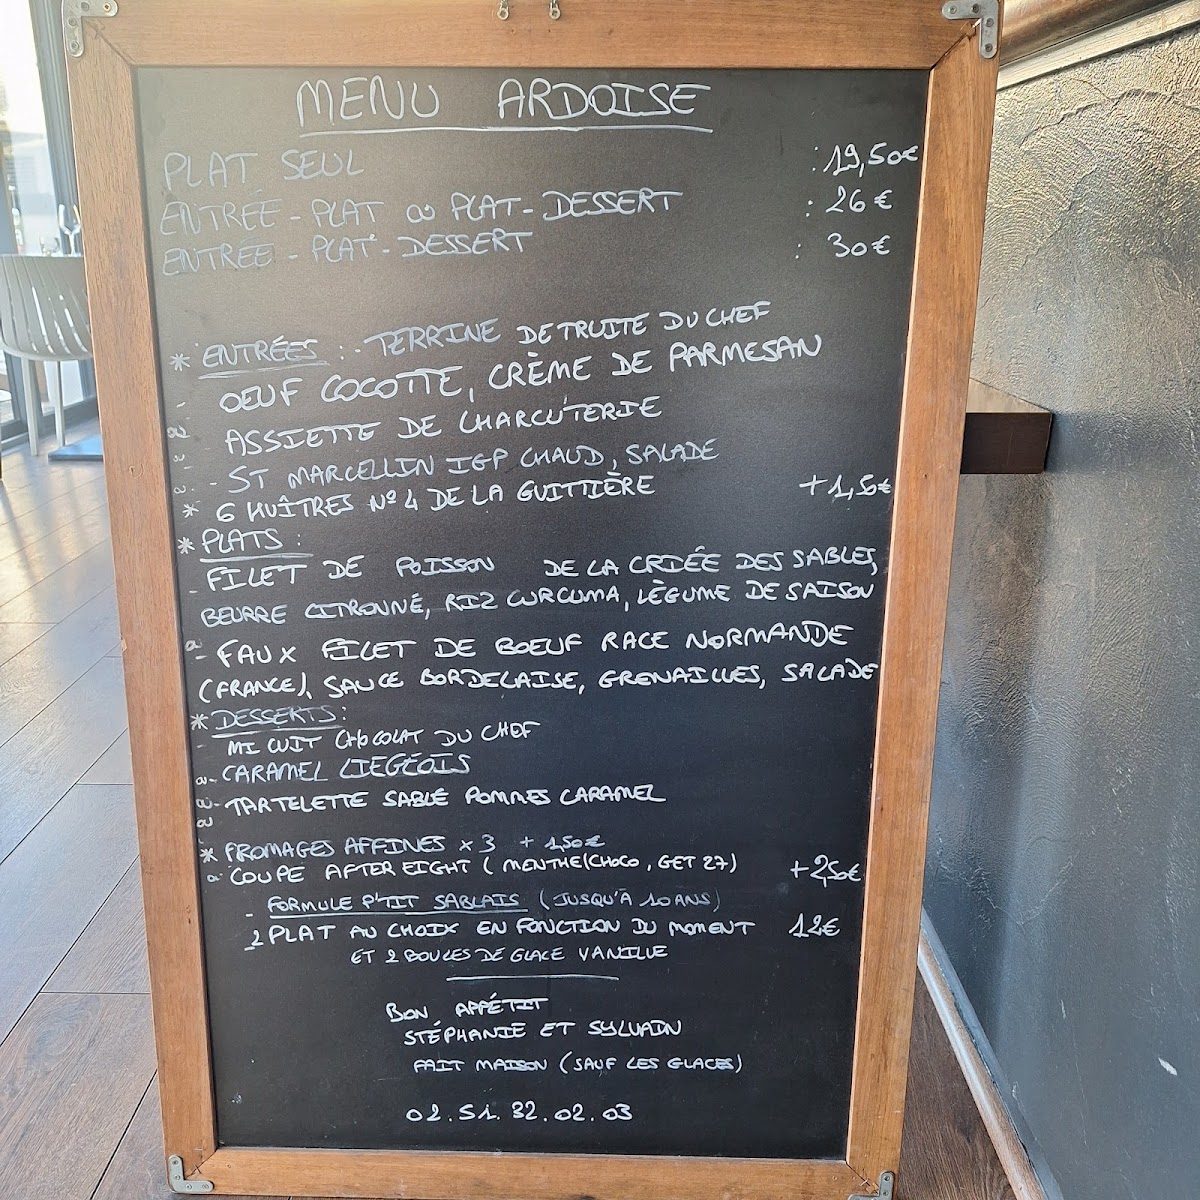 MENU ARDOISE
PLAT SEUL : 19,50€
ENTRÉE - PLAT OU PLAT - DESSERT : 26€
ENTRÉE - PLAT - DESSERT : 30€
* ENTRÉES : - TERRINE DE TRUITE DU CHEF
- OEUF COCOTTE, CRÈME DE PARMESAN
ASSIETTE DE CHARCUTERIE
- ST MARCELLIN IGP CHAUD, SALADE
* 6 HUÎTRES N° 4 DE LA GUITTIÈRE +1,50€
* PLATS :
- FILET DE POISSON DE LA CRIÉE DES SABLES,
BEURRE CITRONNÉ, RIZ CURCUMA, LÈGUME DE SAISON
- FAUX FILET DE BOEUF RACE NORMANDE
(FRANCE), SAUCE BORDELAISE, GRENAILLES, SALADE
* DESSERTS :
- MI CUIT CHOCOLAT DU CHEF
- CARAMEL LIEGEOIS
- TARTELETTE SABLÉ POMMES CARAMEL
* FROMAGES AFFINES x 3 + 1,50€
COUPE AFTER EIGHT (MENTHE/CHOCO, GET 27) +2,50€
- FORMULE P'TIT SABLAIS (JUSQU'À 10 ANS)
PLAT AU CHOIX EN FONCTION DU MOMENT 12€
ET 2 BOULES DE GLACE VANILLE
BON APPÉTIT
STÉPHANIE ET SYLVAIN
FAIT MAISON (SAUF LES GLACES)
02.51.32.02.03